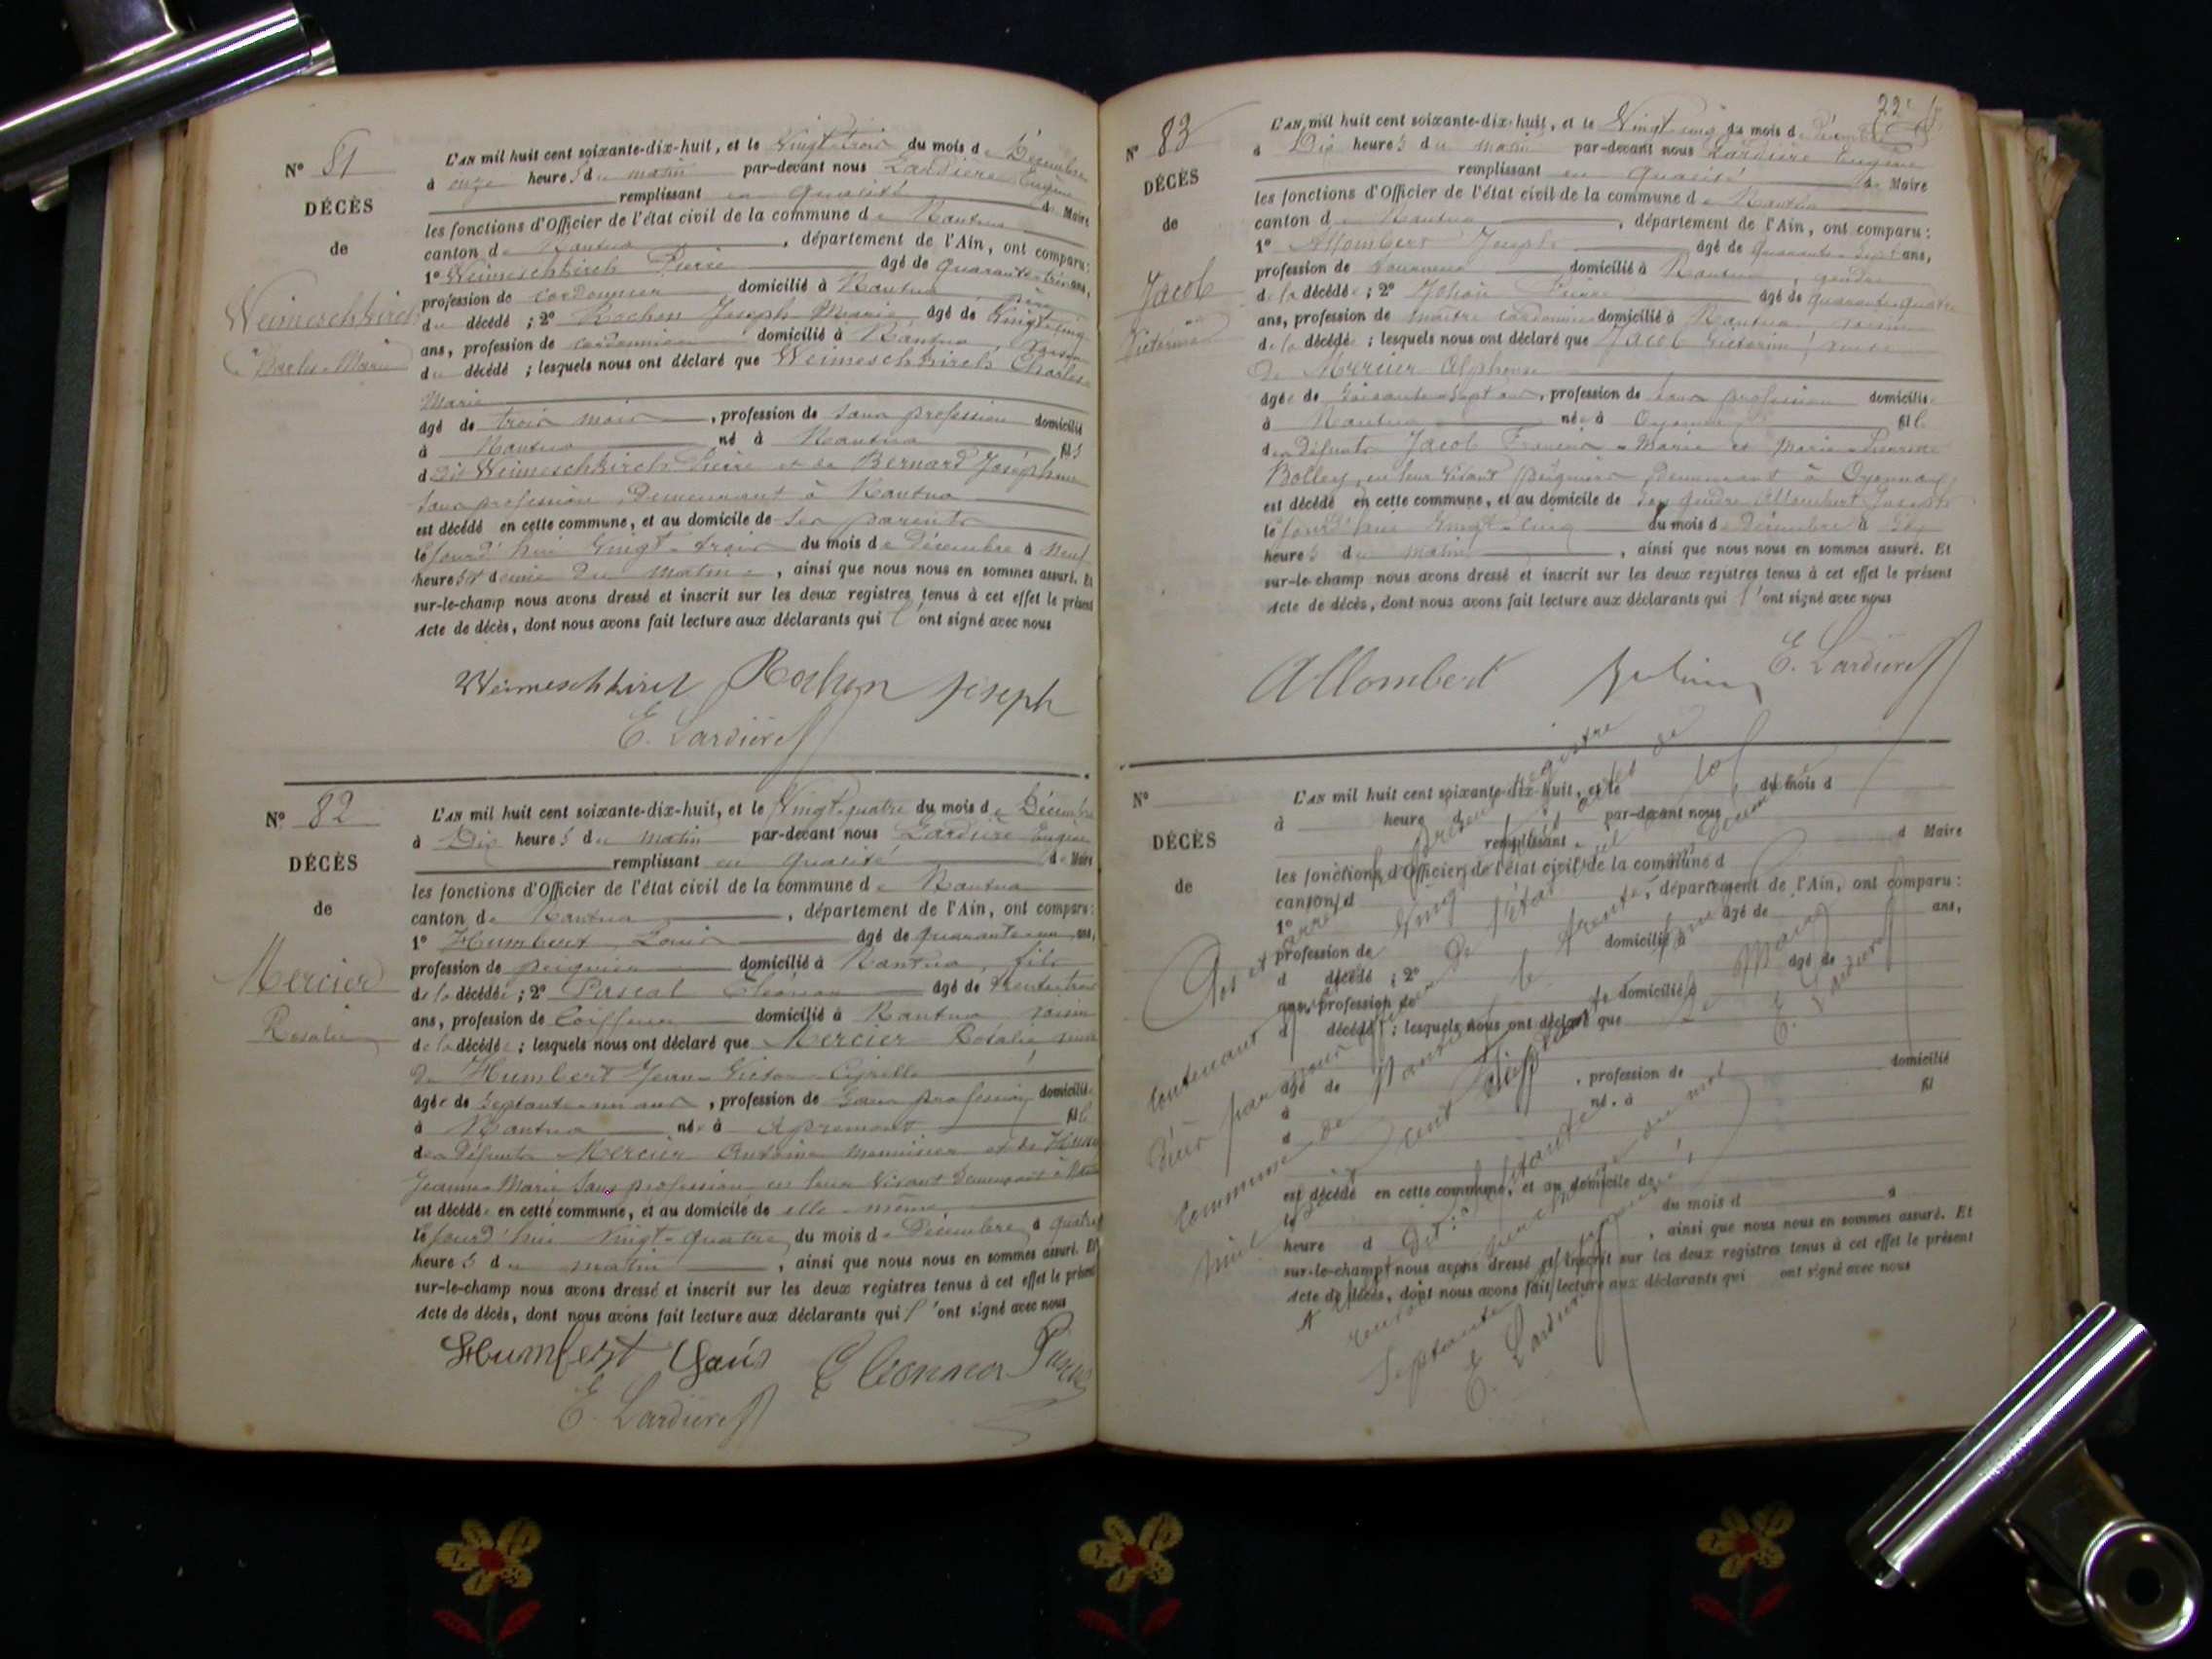 N° 81
DÉCÈS
de
Weimeschkirch
Charles-Marie
L'AN mil huit cent soixante-dix-huit, et le Vingt-trois du mois de Décembre
à onze heures du matin par-devant nous Lardière Eugène
remplissant en qualité de Maire
les fonctions d'Officier de l'état civil de la commune de Nantua
canton de Nantua, département de l'Ain, ont comparu:
1° Weimeschkirch Pierre âgé de quarante-trois ans,
profession de cordonnier domicilié à Nantua père
du décédé; 2° Rochon Joseph Marie âgé de Vingt-cinq
ans, profession de cordonnier domicilié à Nantua, voisin
du décédé; lesquels nous ont déclaré que Weimeschkirch Charles
Marie
âgé de trois mois, profession de sans profession domicilié
à Nantua né à Nantua fils
dudit Weimeschkirch Pierre et de Bernard Joséphine
sans profession, demeurant à Nantua
est décédé en cette commune, et au domicile de ses parents
le jourd'hui Vingt-trois du mois de Décembre à neuf
heures et demie du matin, ainsi que nous nous en sommes assuré. Et
sur-le-champ nous avons dressé et inscrit sur les deux registres tenus à cet effet le présent
Acte de décès, dont nous avons fait lecture aux déclarants qui l'ont signé avec nous
Weimeschkirch Rochon Joseph
E. Lardière
N° 82
DÉCÈS
de
Mercier
Rosalie
L'AN mil huit cent soixante-dix-huit, et le Vingt-quatre du mois de Décembre
à Dix heures du matin par-devant nous Lardière Eugène
remplissant en qualité de Maire
les fonctions d'Officier de l'état civil de la commune de Nantua
canton de Nantua, département de l'Ain, ont comparu:
1° Humbert Louis âgé de quarante-un ans,
profession de peignier domicilié à Nantua, fils
de la décédée; 2° Pascal Eléonor âgé de trente-trois
ans, profession de Coiffeur domicilié à Nantua voisin
de la décédée; lesquels nous ont déclaré que Mercier Rosalie veuve
de Humbert Jean-Victor-Cyrille
âgée de Septante-un ans, profession de sans profession domiciliée
à Nantua née à Apremont fille
des défunts Mercier Antoine menuisier et de
Jeanne-Marie sans profession en leur vivant demeurant à
est décédée en cette commune, et au domicile de elle-même
le jourd'hui Vingt-quatre du mois de Décembre à quatre
heures du matin, ainsi que nous nous en sommes assuré. Et
sur-le-champ nous avons dressé et inscrit sur les deux registres tenus à cet effet le présent
Acte de décès, dont nous avons fait lecture aux déclarants qui l'ont signé avec nous
Humbert Louis Eleonnor Pascal
E. Lardière
22
N° 83
DÉCÈS
de
Jacob
Victorine
L'AN mil huit cent soixante-dix-huit, et le Vingt-cinq du mois de Décembre
à Dix heures du matin par-devant nous Lardière Eugène
remplissant en qualité de Maire
les fonctions d'Officier de l'état civil de la commune de Nantua
canton de Nantua, département de l'Ain, ont comparu:
1° Allombert Joseph âgé de quarante-sept ans,
profession de tourneur domicilié à Nantua, gendre
de la décédée; 2° âgé de quarante-quatre
ans, profession de maître cordonnier domicilié à Nantua voisin
de la décédée; lesquels nous ont déclaré que Jacob Victorine, veuve
de Mercier Alphonse
âgée de soixante-sept ans, profession de sans profession domiciliée
à Nantua née à Oyonnax fille
des défunts Jacob François-Marie et Marie-Pierrette
Bolley, en leur vivant peigniers, demeurant à Oyonnax
est décédé en cette commune, et au domicile de son gendre Allombert Joseph
le jourd'hui Vingt-cinq du mois de Décembre à Six
heures du matin, ainsi que nous nous en sommes assuré. Et
sur-le-champ nous avons dressé et inscrit sur les deux registres tenus à cet effet le présent
Acte de décès, dont nous avons fait lecture aux déclarants qui l'ont signé avec nous
Allombert E. Lardière
N°
DÉCÈS
de
L'AN mil huit cent soixante-dix-huit, et le du mois d
à heure d par-devant nous
remplissant d Maire
les fonctions d'Officier de l'état civil de la commune d
canton d, département de l'Ain, ont comparu:
1° âgé de ans,
profession de domicilié à
d décédé; 2° âgé de
ans, profession de domicilié à
d décédé; lesquels nous ont déclaré que
âgé de, profession de domicilié
à né à fil
d
est décédé en cette commune, et au domicile de
le du mois d à
heure d, ainsi que nous nous en sommes assuré. Et
sur-le-champ nous avons dressé et inscrit sur les deux registres tenus à cet effet le présent
Acte de décès, dont nous avons fait lecture aux déclarants qui ont signé avec nous
Clos et arrêté le présent registre
contenant
commune de Nantua le trente
mil cent Septante
Le Maire
E. Lardière
Septante
E. Lardière